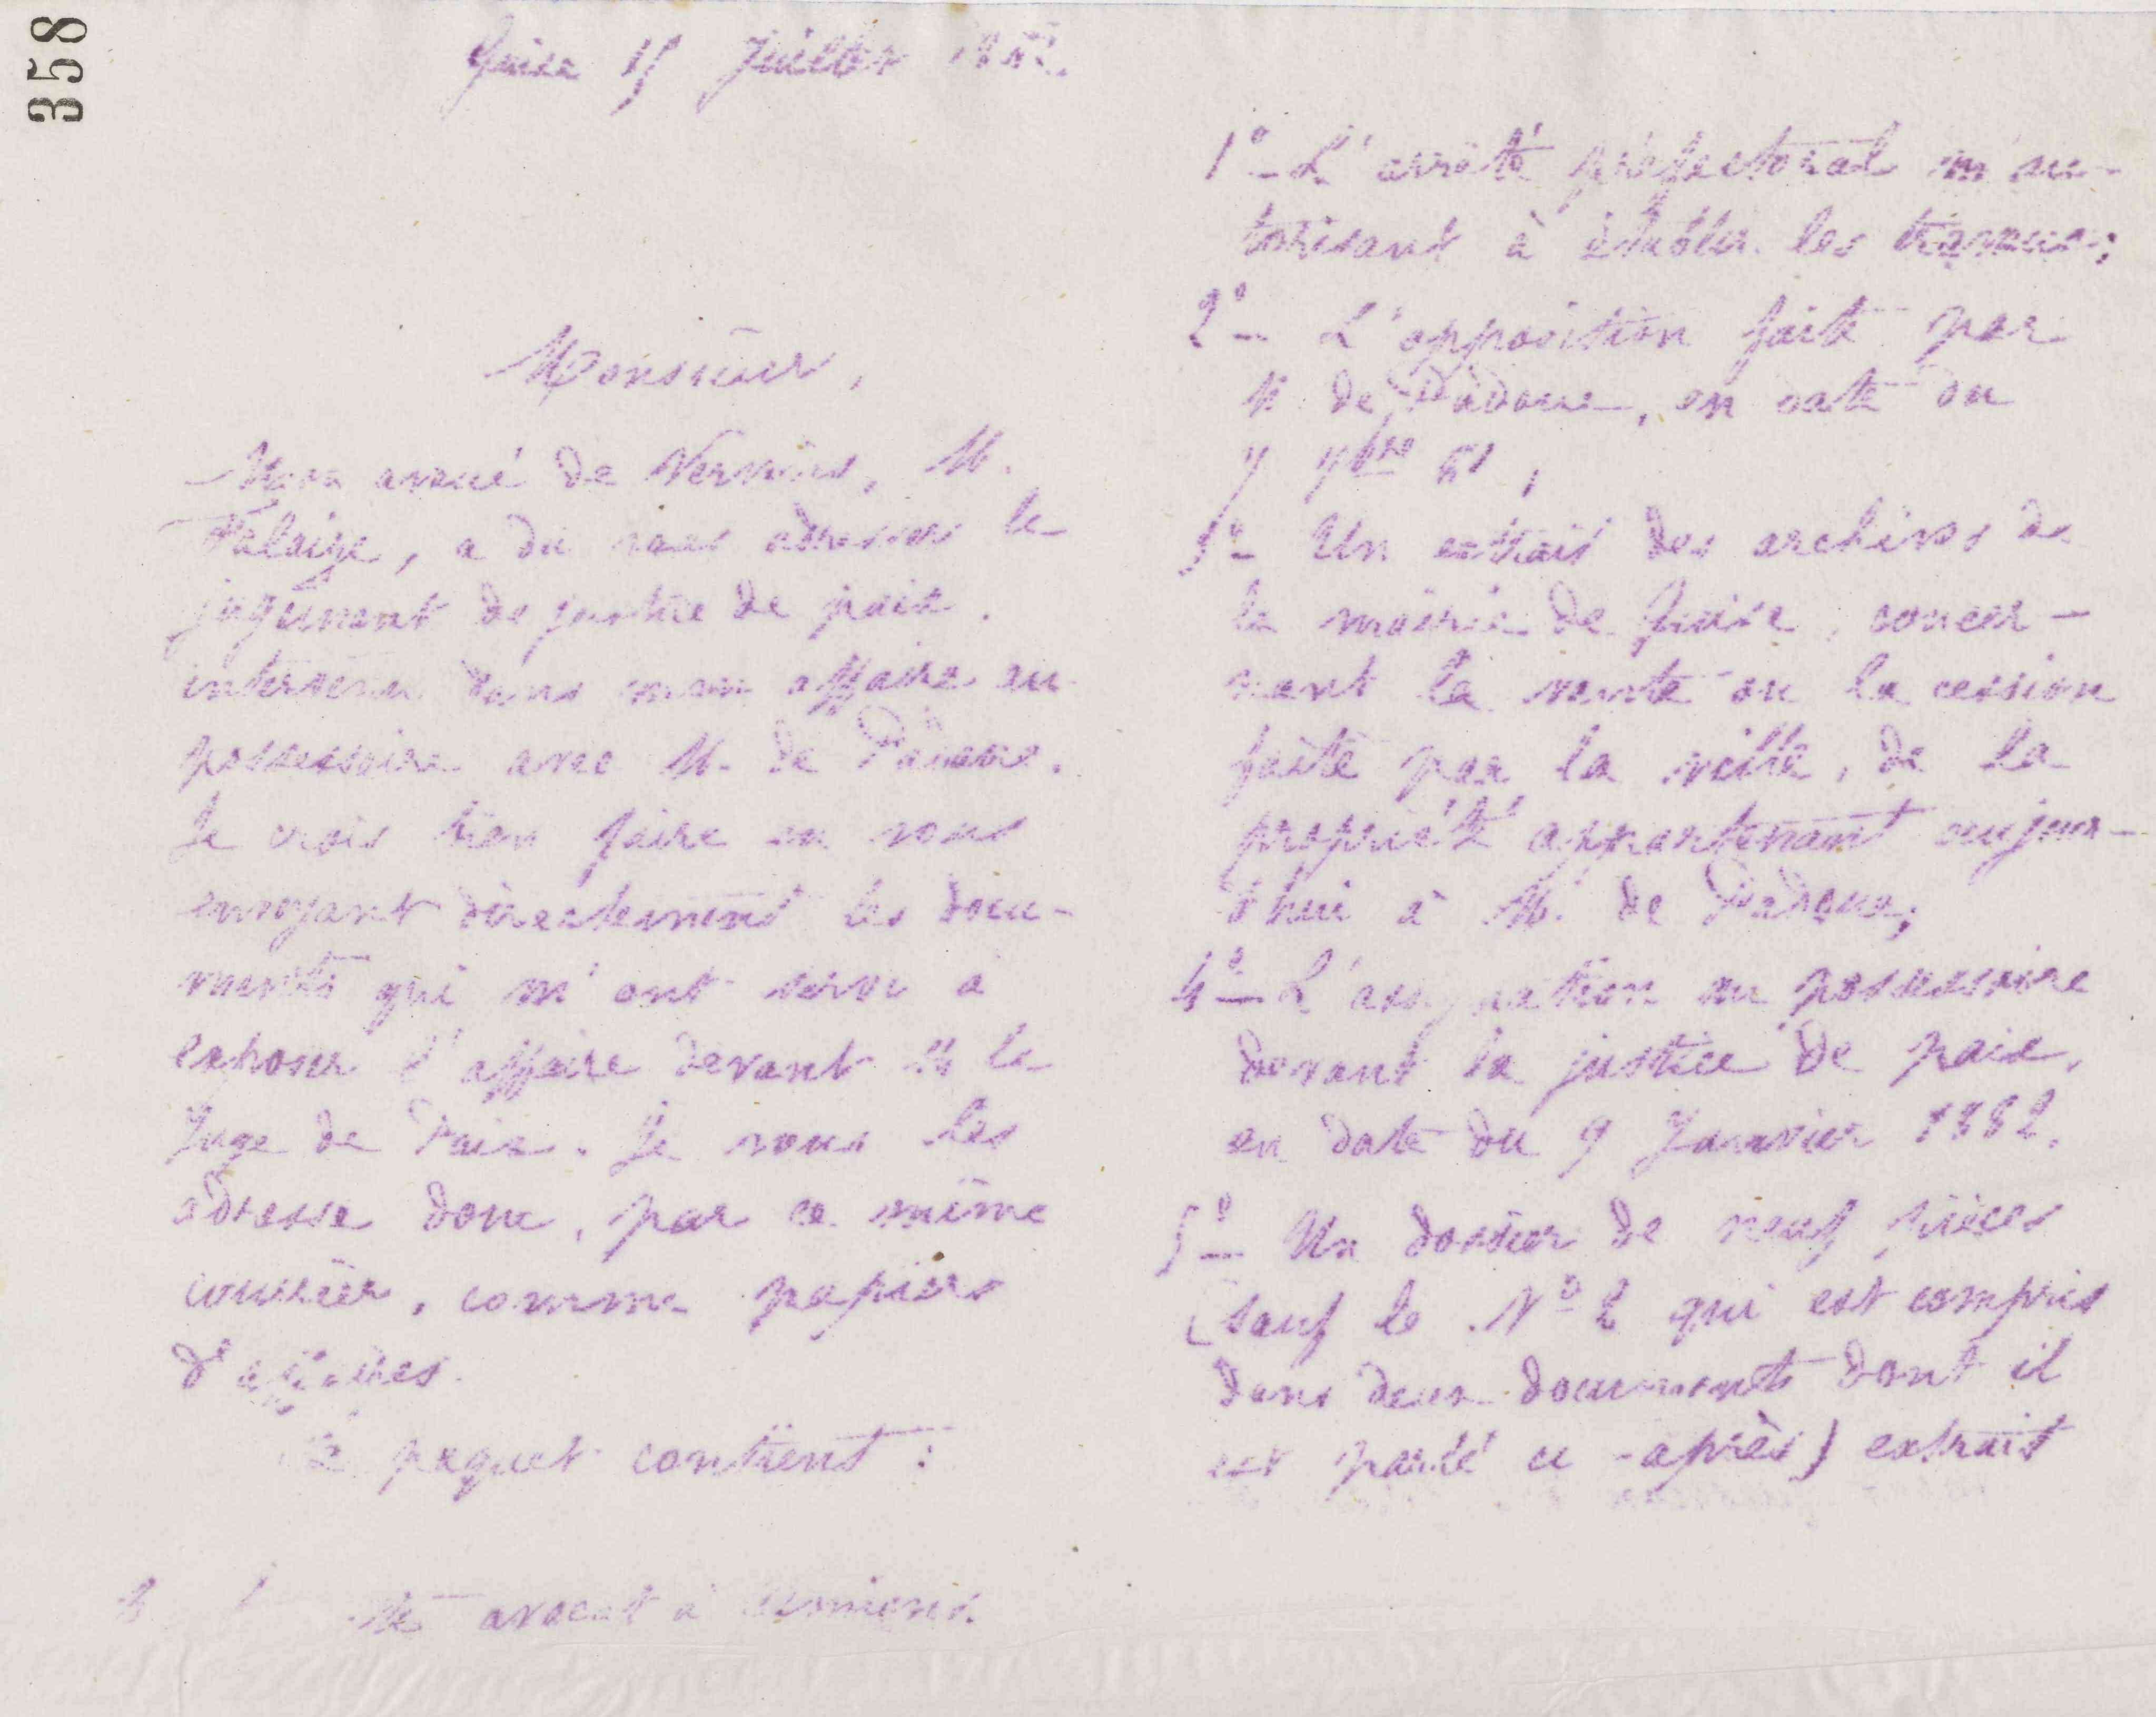 358
Guise 15 Juillet 1882.
Monsieur,
Mon avoué de Vervins, M.
Falaize, a du vous adresser le
jugement de justice de paix
intervenu dans mon affaire au
possessoire avec M. de Padoue.
Je crois bien faire en vous
envoyant directement les docu-
ments qui m'ont servi à
exposer l'affaire devant M le
Juge de Paix. Je vous les
adresse donc, par ce même
courrier, comme papiers
d'affaires.
Ce paquet contient :
avocat à Amiens.
1º - L'arrêté préfectoral m'au-
torisant à établir les travaux;
2º - L'opposition faite par
M. de Padoue, en date du
7 7bre 81,
3º - Un extrait des archives de
la mairie de Guise, concer-
nant la vente ou la cession
faite par la ville, de la
propriété appartenant aujour-
d'hui à M. de Padoue;
4º - L'assignation au possessoire
devant la justice de paix,
en date du 9 Janvier 1882.
5º - Un dossier de neuf pièces
(sauf le Nº 2 qui est compris
dans deux documents dont il
est parlé ci-après) extrait